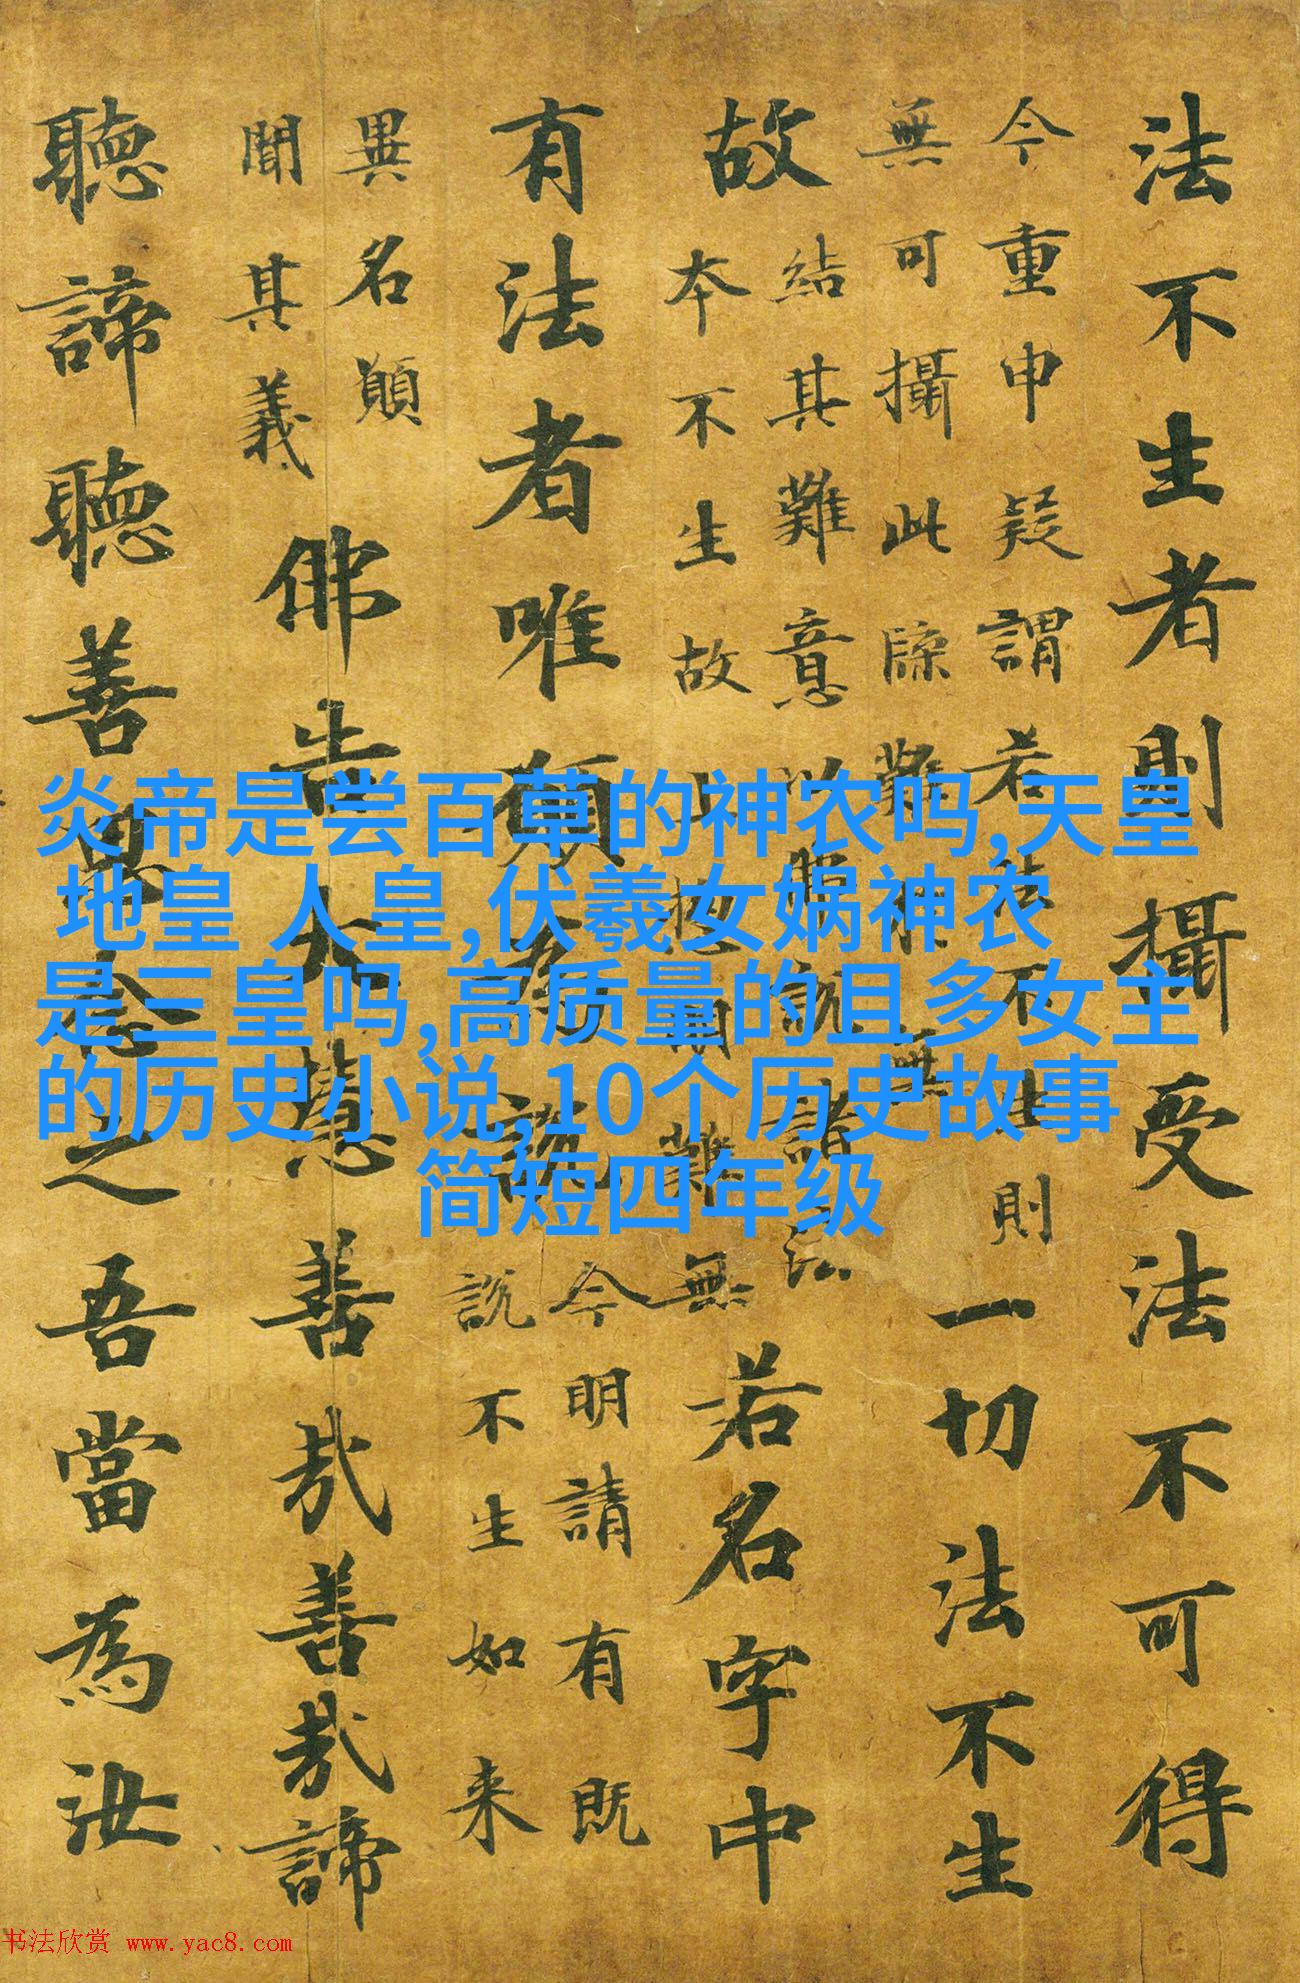 法不生者則攝受法不可得
今重申疑謂若法不生則
無可攝此牒難無
一切法不生
故
結其難意以說諸法
本不生故難無
若名字中
有法者唯願為說
今明請有既
說不生如来
異名願
聞其義
佛告大慧善哉善哉諦
聽諦聽善思念之吾當為汝
炎帝是尝百草的神农吗,天皇
地皇 人皇,伏羲女娲神农
是三皇吗,高质量的且多女主
的历史小说,10个历史故事
简短四年级
书法欣赏 www.yac8.com